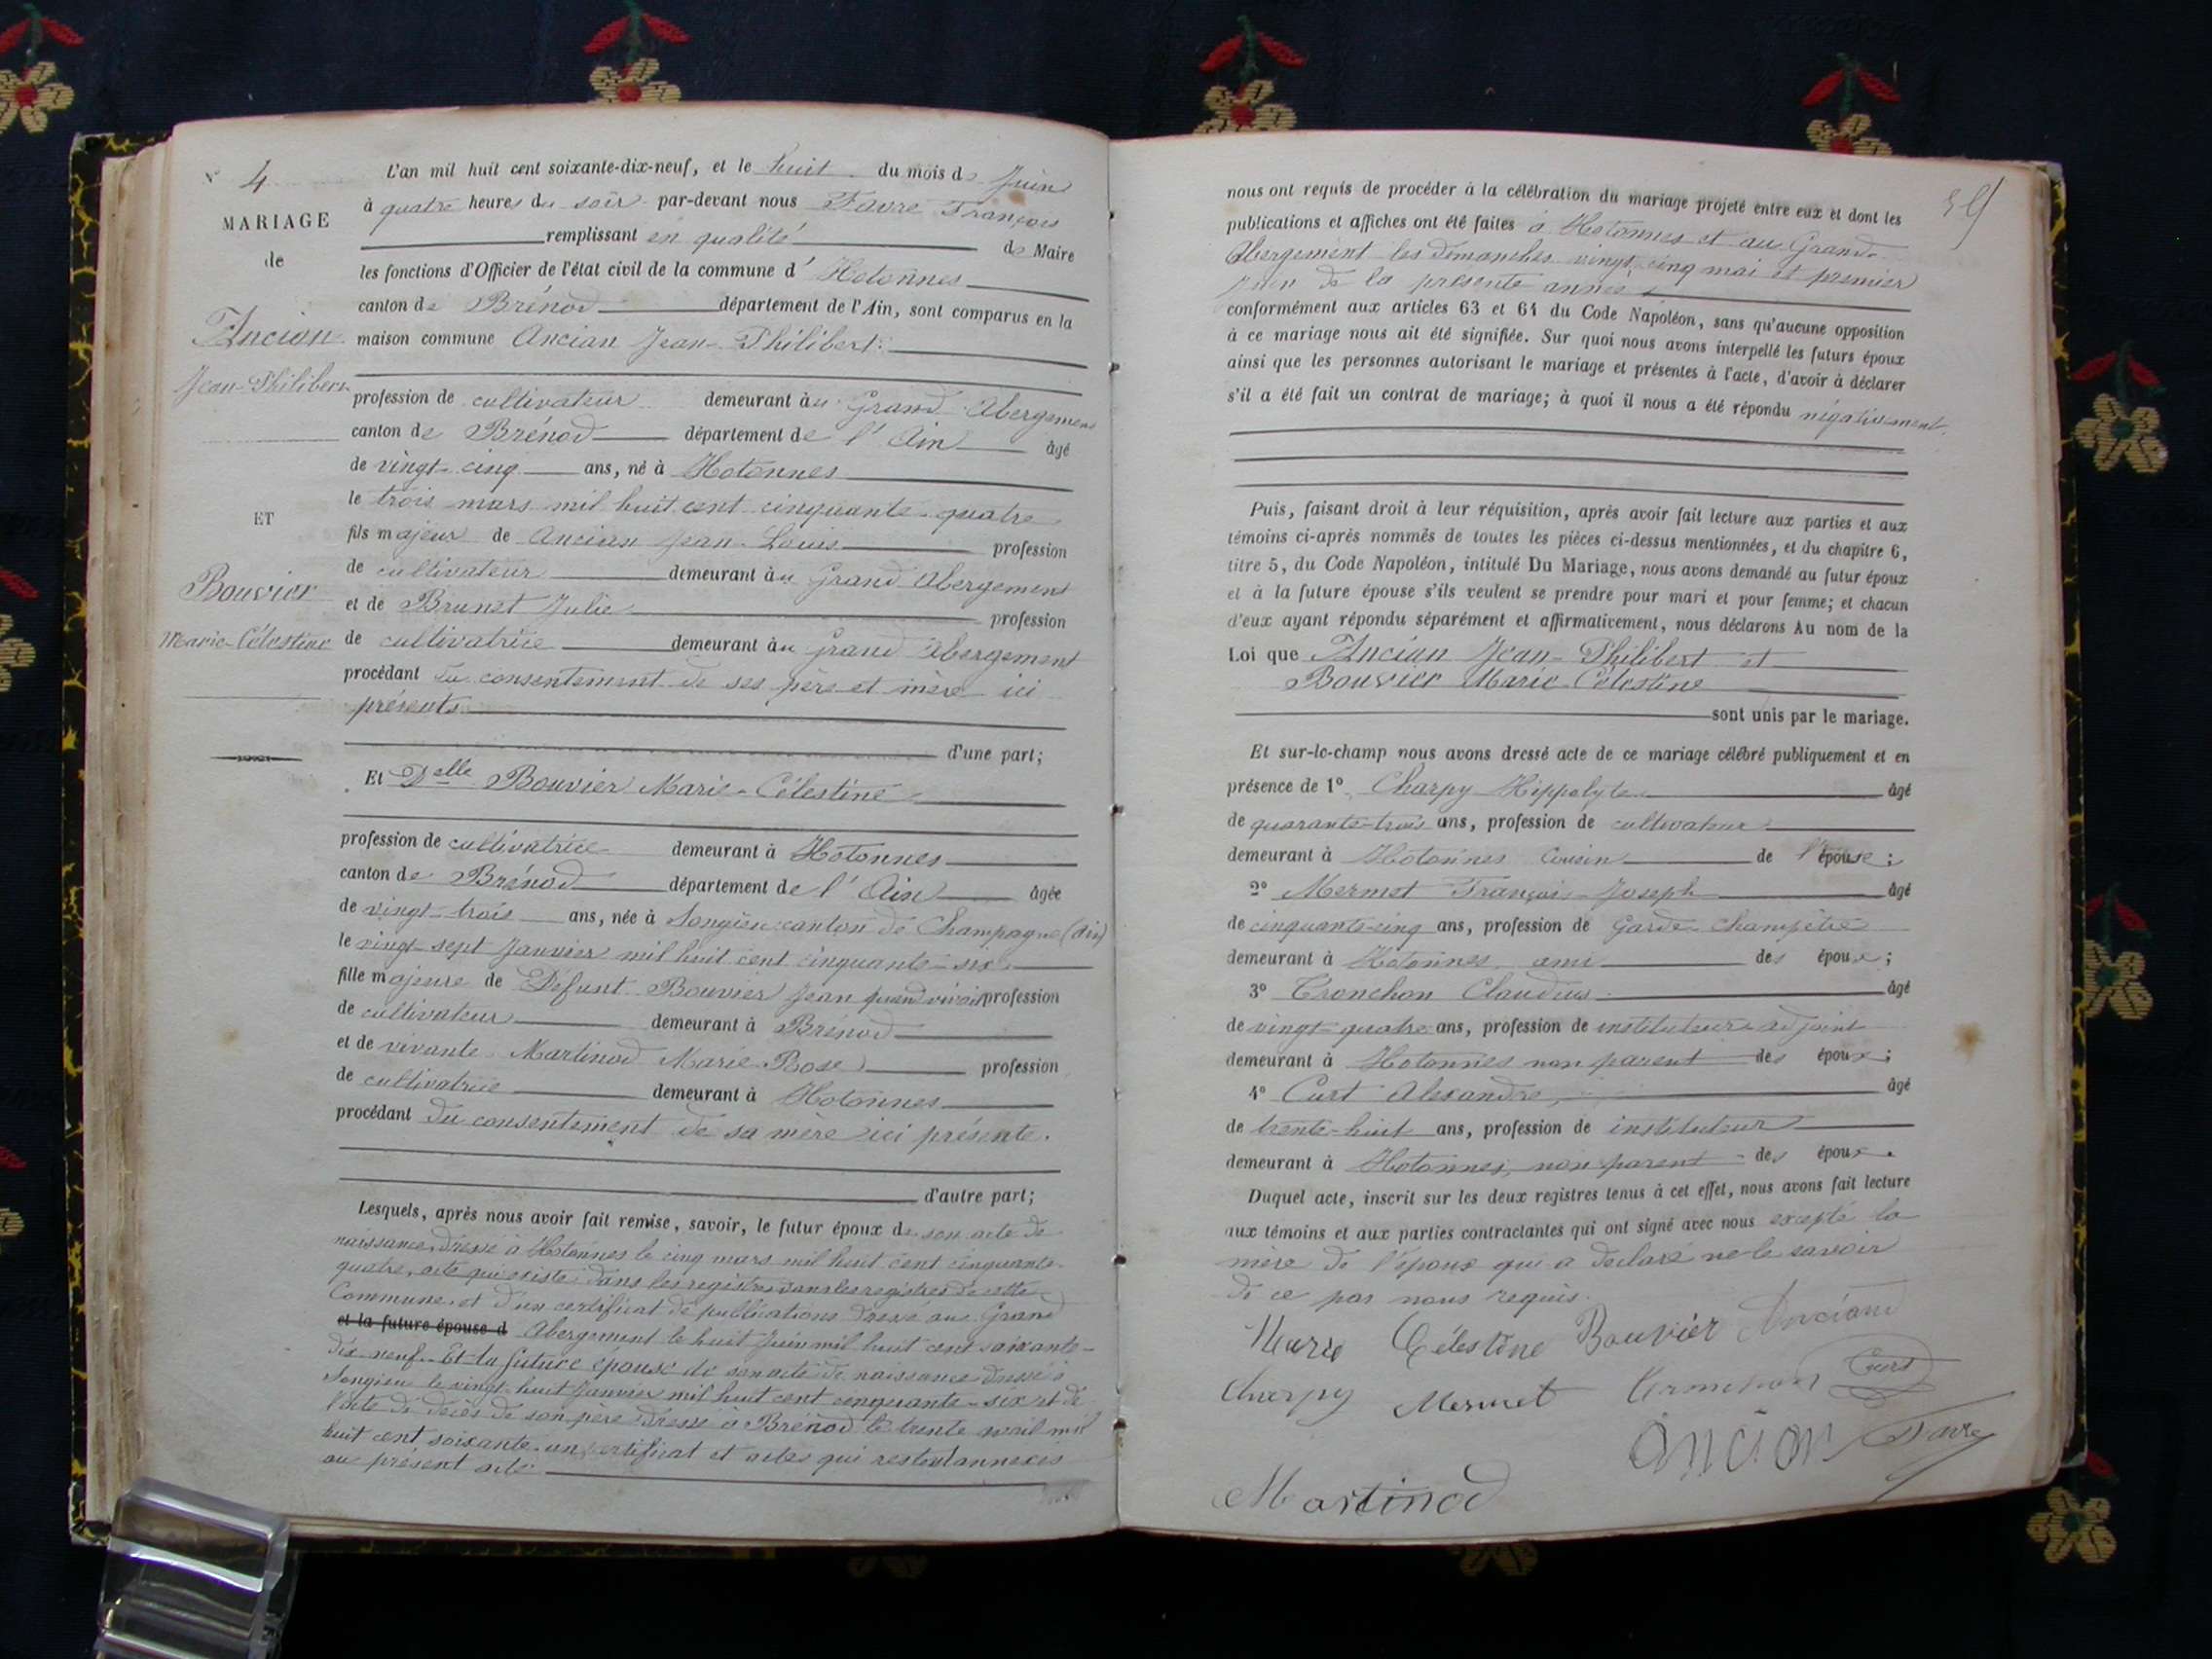 N° 4
MARIAGE
de
Ancian
Jean-Philibert
ET
Bouvier
Marie-Célestine
L'an mil huit cent soixante-dix-neuf, et le huit du mois de Juin
à quatre heures du soir par-devant nous Favre François
remplissant en qualité de Maire
les fonctions d'Officier de l'état civil de la commune d'Hotonnes
canton de Brénod département de l'Ain, sont comparus en la
maison commune Ancian Jean-Philibert
profession de cultivateur demeurant au Grand Abergement
canton de Brénod département de l'Ain âgé
de vingt-cinq ans, né à Hotonnes
le trois mars mil huit cent cinquante-quatre
fils majeur de Ancian Jean-Louis profession
de cultivateur demeurant au Grand Abergement
et de Brunet Julie profession
de cultivatrice demeurant au Grand Abergement
procédant du consentement de ses père et mère ici
présents
d'une part;
Et Delle Bouvier Marie-Célestine
profession de cultivatrice demeurant à Hotonnes
canton de Brénod département de l'Ain âgée
de vingt-trois ans, née à Songieu canton de Champagne (Ain)
le vingt-sept Janvier mil huit cent cinquante-six
fille majeure de Défunt Bouvier Jean quand vivait profession
de cultivateur demeurant à Brénod
et de vivante Martinod Marie-Rose profession
de cultivatrice demeurant à Hotonnes
procédant du consentement de sa mère ici présente.
d'autre part;
Lesquels, après nous avoir fait remise, savoir, le futur époux de son acte de
naissance dressé à Hotonnes le cinq mars mil huit cent cinquante-
quatre, acte qui existe dans les registres dans les registres de cette
Commune, et d'un certificat de publications dressé au Grand
et la future épouse d Abergement le huit Juin mil huit cent soixante-
dix-neuf. Et la future épouse de son acte de naissance dressé à
Songieu le vingt-huit Janvier mil huit cent cinquante-six et de
l'acte de décès de son père dressé à Brénod le trente avril mil
huit cent soixante-un, certificat et actes qui restent annexés
au présent acte
nous ont requis de procéder à la célébration du mariage projeté entre eux et dont les
publications et affiches ont été faites à Hotonnes et au Grand-
Abergement les Dimanches vingt-cinq mai et premier
juin de la présente année
conformément aux articles 63 et 64 du Code Napoléon, sans qu'aucune opposition
à ce mariage nous ait été signifiée. Sur quoi nous avons interpellé les futurs époux
ainsi que les personnes autorisant le mariage et présentes à l'acte, d'avoir à déclarer
s'il a été fait un contrat de mariage; à quoi il nous a été répondu négativement.
Puis, faisant droit à leur réquisition, après avoir fait lecture aux parties et aux
témoins ci-après nommés de toutes les pièces ci-dessus mentionnées, et du chapitre 6,
titre 5, du Code Napoléon, intitulé Du Mariage, nous avons demandé au futur époux
et à la future épouse s'ils veulent se prendre pour mari et pour femme; et chacun
d'eux ayant répondu séparément et affirmativement, nous déclarons Au nom de la
Loi que Ancian Jean-Philibert et
Bouvier Marie-Célestine
sont unis par le mariage.
Et sur-le-champ nous avons dressé acte de ce mariage célébré publiquement et en
présence de 1° Charpy Hippolyte âgé
de quarante-trois ans, profession de cultivateur
demeurant à Hotonnes cousin de l'épouse;
2° Mermet François-Joseph âgé
de cinquante-cinq ans, profession de Garde-Champêtre
demeurant à Hotonnes ami des époux;
3° Tronchon Claudius âgé
de vingt-quatre ans, profession de instituteur adjoint
demeurant à Hotonnes non parent des époux;
4° Curt Alexandre, âgé
de trente-huit ans, profession de instituteur
demeurant à Hotonnes, non parent des époux.
Duquel acte, inscrit sur les deux registres tenus à cet effet, nous avons fait lecture
aux témoins et aux parties contractantes qui ont signé avec nous excepté la
mère de l'époux qui a déclaré ne le savoir
de ce par nous requis.
Marie Célestine Bouvier Ancian
Charpy Mermet Tronchon Curt
Ancian Favre
Martinod